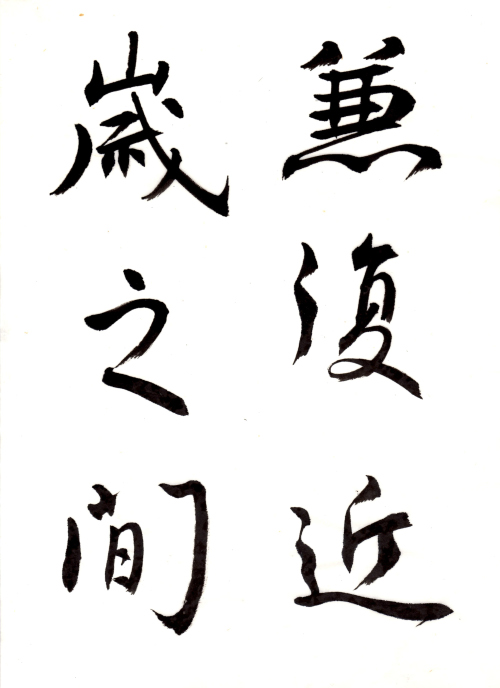 兼復近
歲之間